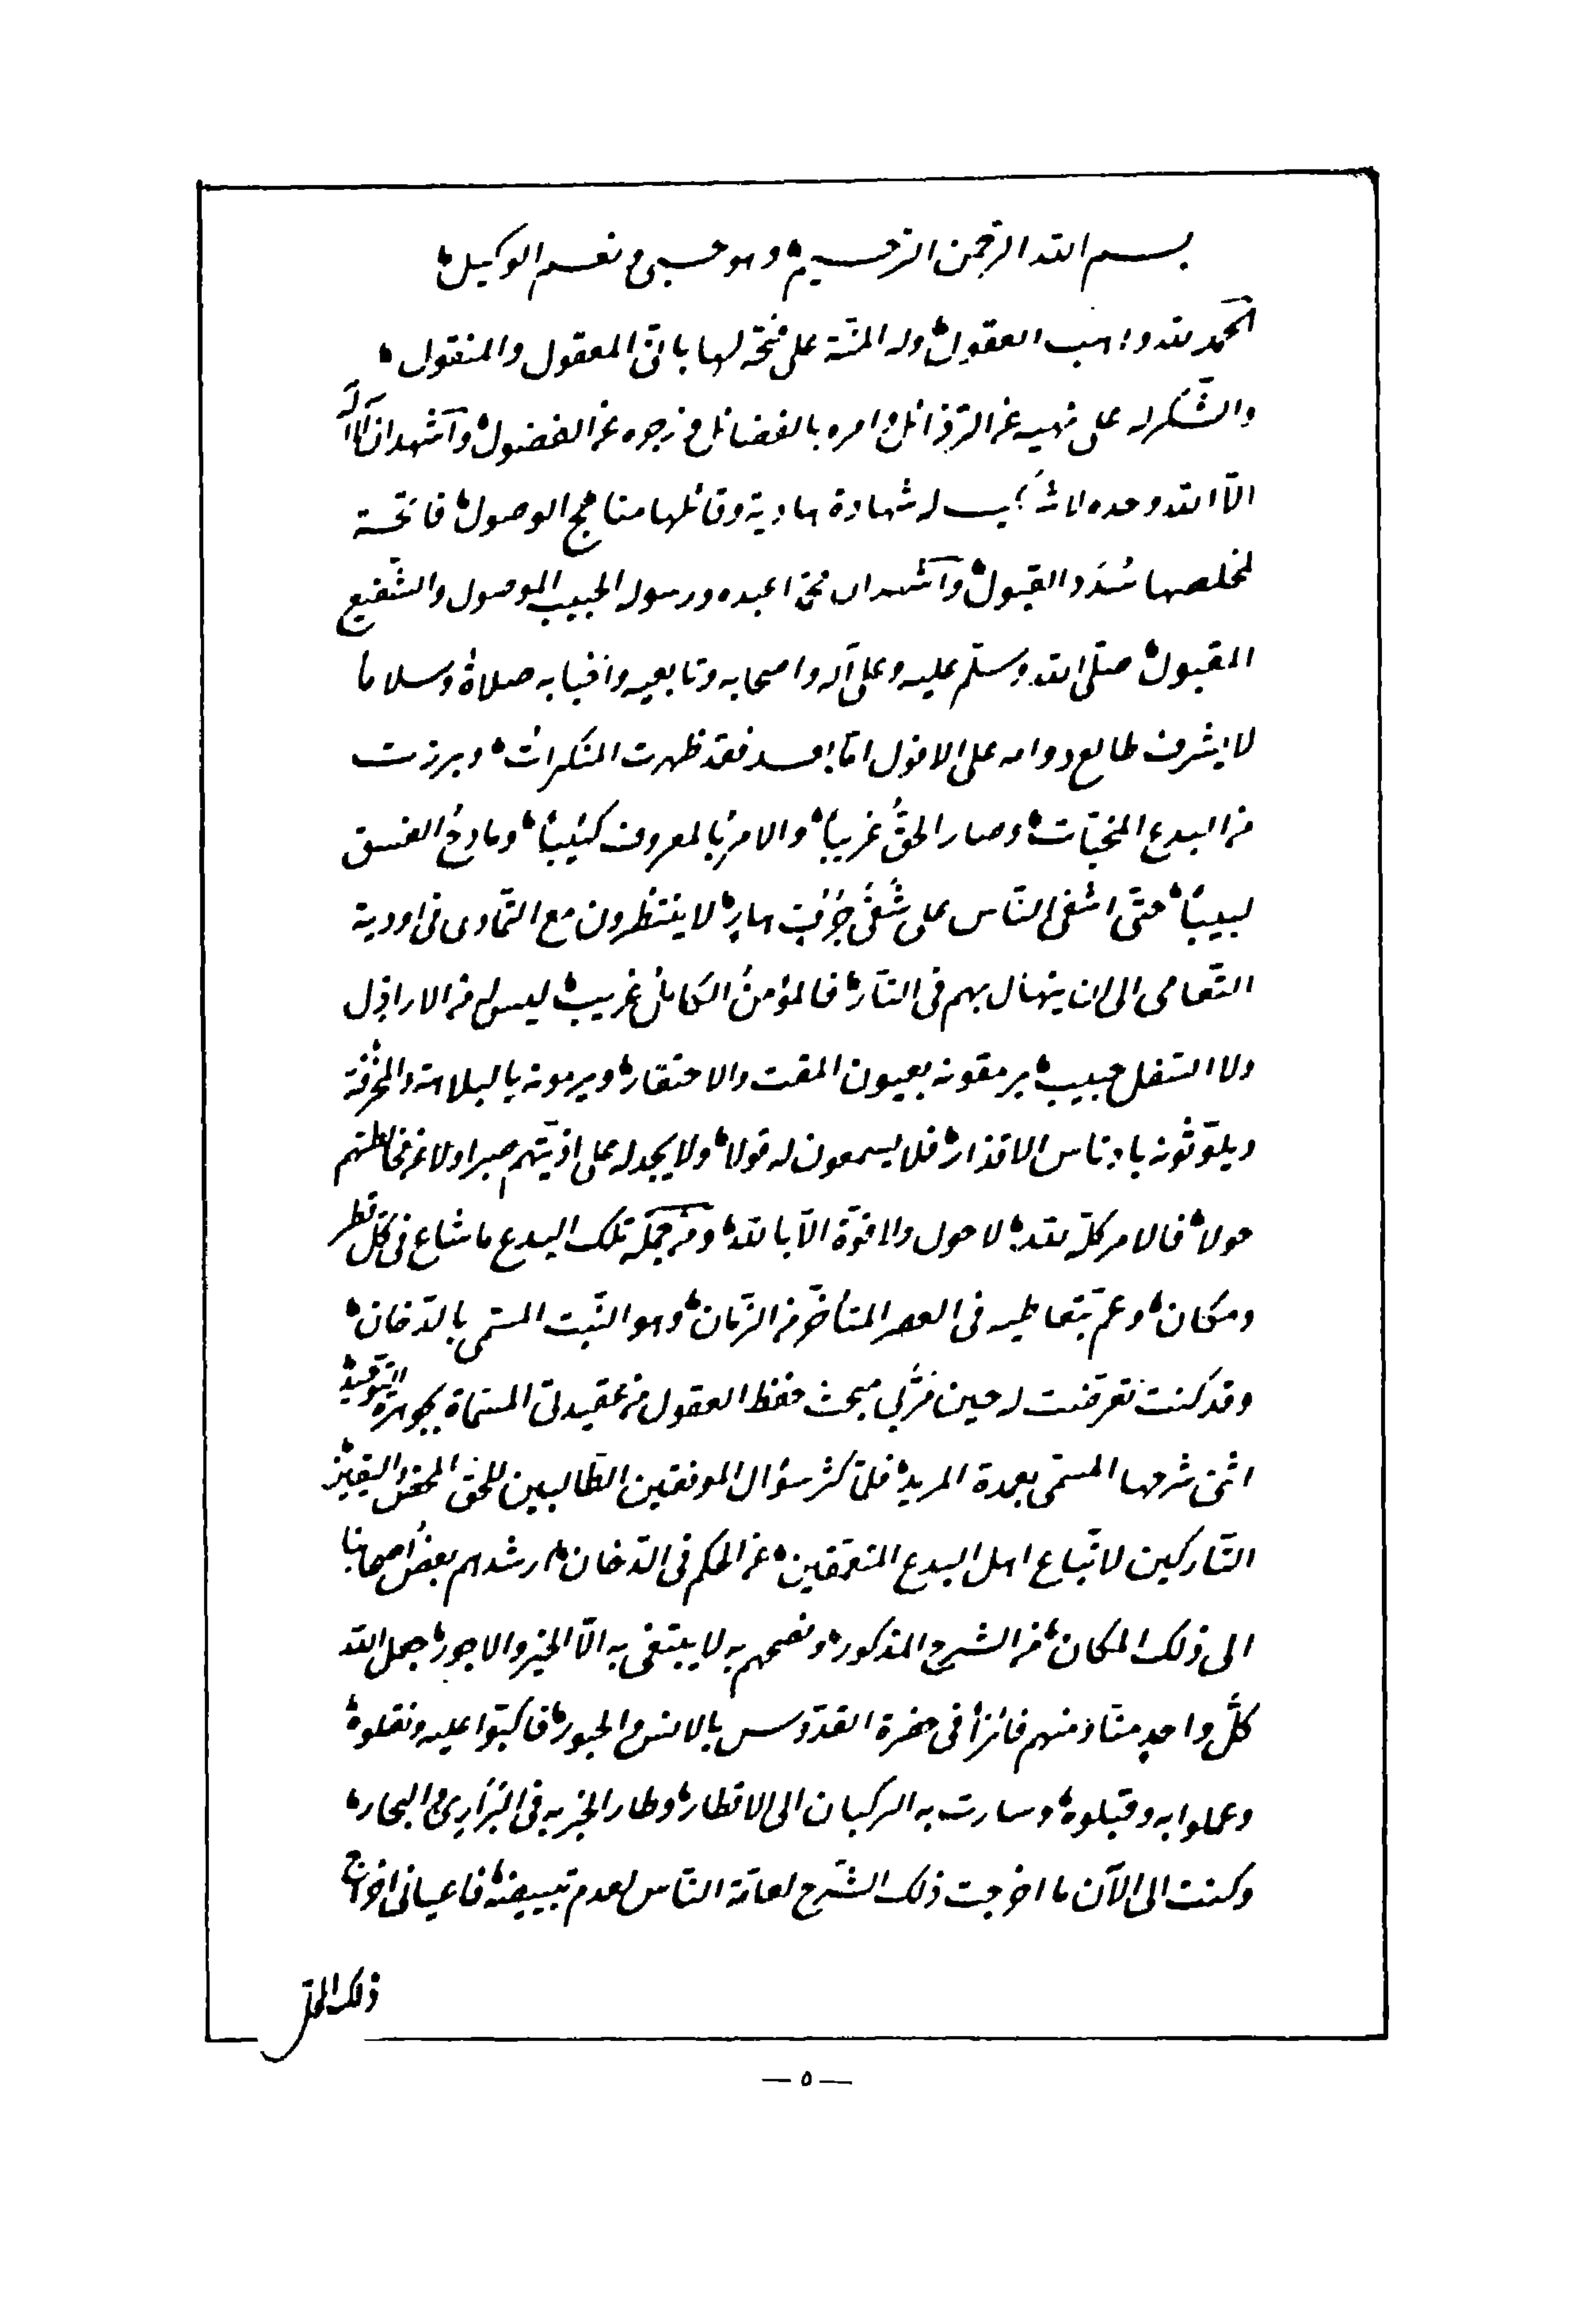 بسم الله الرحمن الرحيم وهو حسبى ونعم الوكيل
الحمد لله واهب العقول وله المنة على منحه لها باتقن المعقول والمنقول
والشكر له على نهيه عن الرذائل وامره بالفضائل وزجره عن الفضول وأشهد ان لا اله
الا الله وحده لا شريك له شهادة هادية وقائلها مناهج الوصول فاتحة
لمخلصها سُدَد القبول وأشهد ان محمدا عبده ورسوله الحبيب الموصول والشفيع
المقبول صلى الله وسلم عليه وعلى آله واصحابه وتابعيه واحبابه صلاة وسلاما
لا يشرف طالع دوامه على الافول اما بعد فقد ظهرت المنكرات وبرزت
من البدع المخبّآت وصار الحقُّ غريباً والامر بالمعروف كئيباً ومادح الفسق
لبيباً حتى اشفى الناس على شفى جُرُفٍ هارٍ لا ينتظرون مع التمادى فى اودية
التعامى الى ان ينهال بهم فى النار فالمؤمنُ الكاملُ غريب ليس له من الاراذل
ولا السفل حبيب يرمقونه بعيون المقت والاحتقار ويرمونه بالبلاهة والمخرقة
ويلوّثونه بادناس الاقذار فلا يسمعون له قولا ولا يجد له على اذيّتهم صبرا ولا عن مخالطتهم
حولا فالامر كلّه لله لا حول ولا قوّة الّا بالله ومن جملة تلك البدع ما شاع فى كلّ قطر
ومكان وعمّ بتعاطيه فى العصر المتأخّر من الزمان وهو النّبت المسمى بالدّخان
وقد كنت تعرّضت له حين مرّ بى مبحث حفظ العقول من عقيدتى المسمّاة بجوهرة التوحيد
اثمن شرحها المسمّى بعمدة المريد فلمّا كثر سؤال الموفقين الطّالبين للحق المحض واليقين
التّاركين لاتّباع اهل البدع المتعمّقين عن الحكم فى الدّخان ارشدهم بعضُ اصحابنا
الى ذلك المكان من الشرح المذكور ونصحهم به لا يبتغى به الّا الخير والاجور جعل الله
كلَّ واحدٍ منّا ومنهم فائزاً فى حضرة القدّوس بالانس والحبور فاكبّوا عليه ونقلوه
وعملوا به وقبلوه وسارت به الركبان الى الاقطار وطار الخبر به فى البَرَارِى والبحار
وكنت الى الآن ما اخرجت ذلك الشّرح لعامّة النّاس لعدم تبييضه فاعيانى اخراج
ذلك المحلّ
— ٥ —